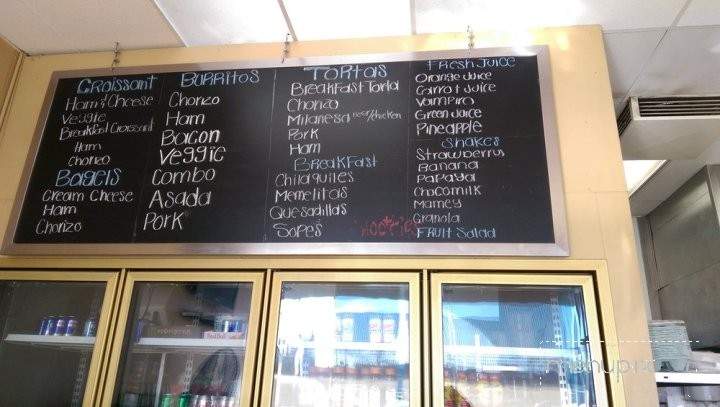 Croissant
Ham & Cheese
Veggie
Breakfast Croissant
Ham
Chorizo
Bagels
Cream Cheese
Ham
Chorizo
Burritos
Chorizo
Ham
Bacon
Veggie
Combo
Asada
Pork
Tortas
Breakfast Torta
Chorizo
Milanesa Beef/Chicken
Pork
Ham
Breakfast
Chilaquiles
Memelitas
Quesadillas
Sopes
Fresh Juice
Orange Juice
Carrot Juice
Vampiro
Green Juice
Pineapple
Shakes
Strawberries
Banana
Papaya
Chocomilk
Mamey
Granola
Fruit Salad